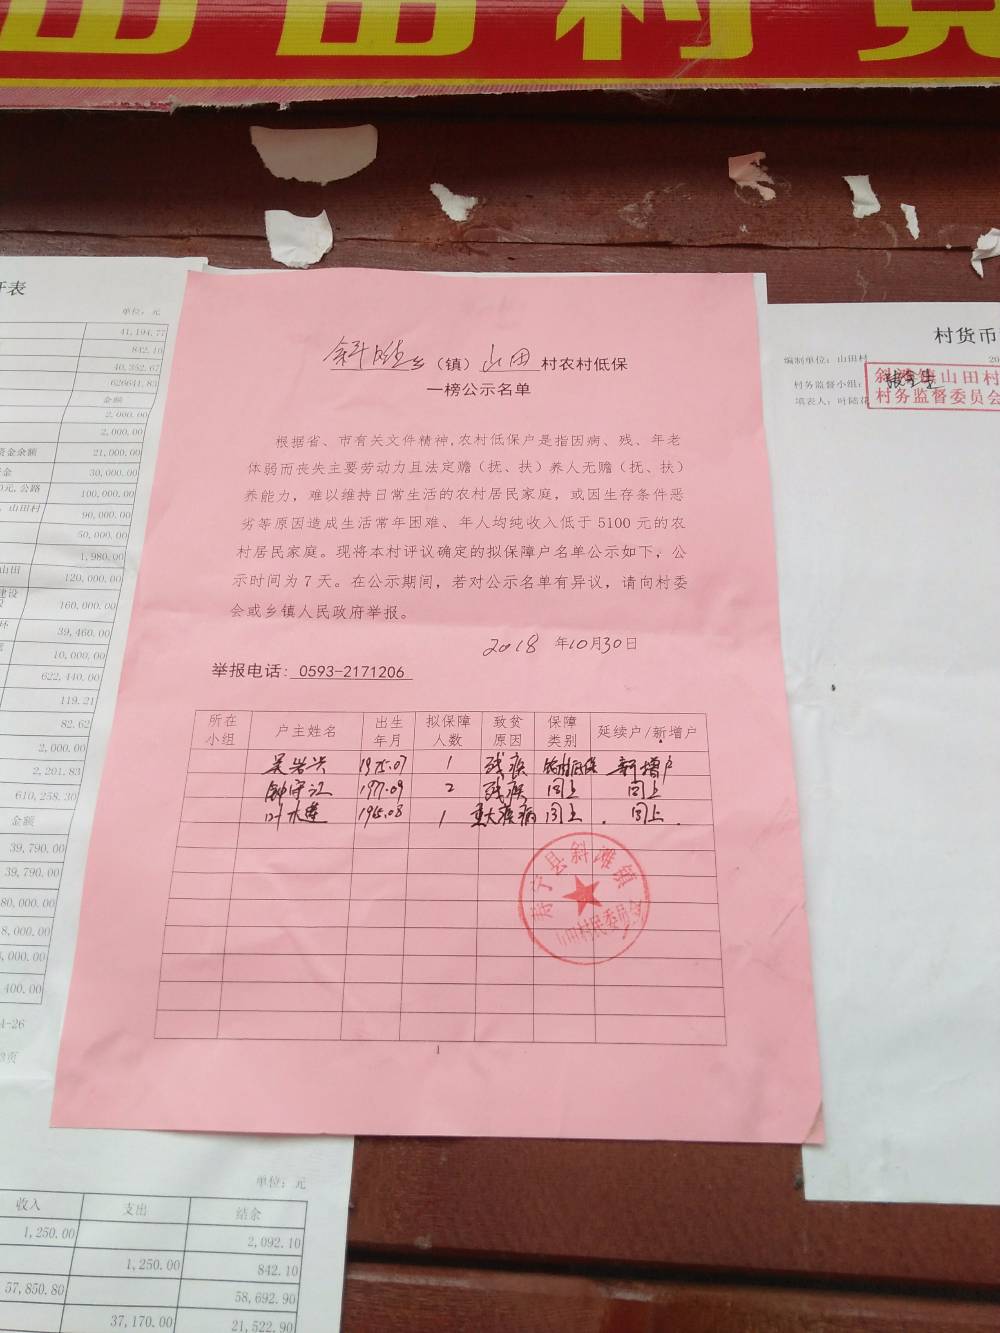 山田村
开表
单位：元
41,194.77
842.10
40,352.67
626641.83
金额
2,000.00
2,000.00
资金余额 21,000.00
30,000.00
公路 100,000.00
山田村 90,000.00
50,000.00
1,980.00
山田 120,000.00
建设
160,000.00
39,460.00
10,000.00
622,440.00
119.21
82.62
2,000.00
2,201.83
610,258.30
金额
39,790.00
39,790.00
80,000.00
8,000.00
,000.00
400.00
4-26
页
斜滩乡（镇）山田村农村低保
一榜公示名单
根据省、市有关文件精神,农村低保户是指因病、残、年老
体弱而丧失主要劳动力且法定赡（抚、扶）养人无赡（抚、扶）
养能力，难以维持日常生活的农村居民家庭，或因生存条件恶
劣等原因造成生活常年困难、年人均纯收入低于 5100 元的农
村居民家庭。现将本村评议确定的拟保障户名单公示如下，公
示时间为 7 天。在公示期间，若对公示名单有异议，请向村委
会或乡镇人民政府举报。
2018 年10月30日
举报电话: 0593-2171206
所在小组 户主姓名 出生年月 拟保障人数 致贫原因 保障类别 延续户/新增户
吴岩兴 1975.07 1 残疾 农村低保 新增户
钟守江 1977.09 2 残疾 同上 同上
叶木莲 1965.08 1 重大疾病 同上 同上
寿宁县斜滩镇
山田村民委员会
1
村货币
编制单位：山田村 20
村务监督小组：
填表人：叶陆花
斜滩镇山田村
村务监督委员会
单位：元
收入 支出 结余
1,250.00 2,092.10
1,250.00 842.10
57,850.80 58,692.90
37,170.00 21,522.90